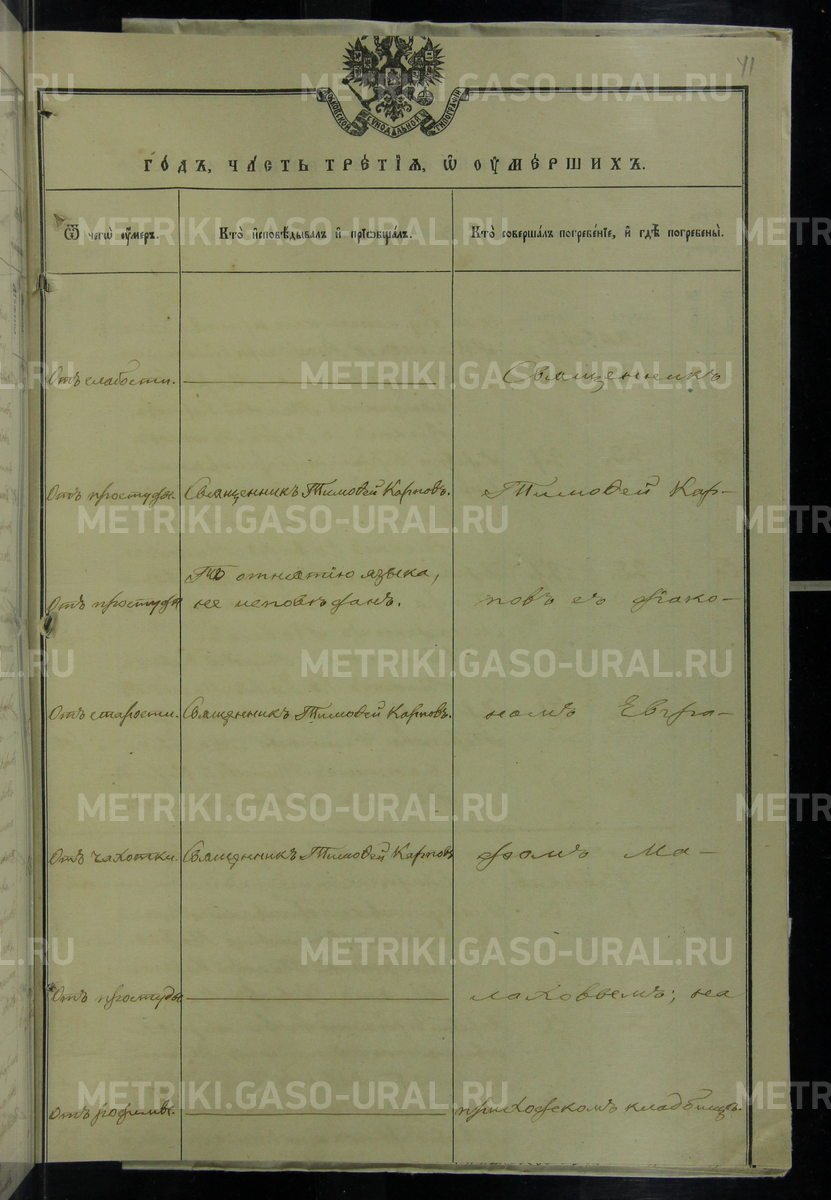 41
МОСКОВСКОЙ СУНОДАЛЬНОЙ ТИПОГРАФІИ
ГОДЪ, ЧАСТЬ ТРЕТІЯ, Ѿ ОУМЕРШИХЪ.
Ѿ чегѡ оумеръ.
Кто исповѣдывалъ и пріобщалъ.
Кто совершалъ погребеніе, и гдѣ погребены.
Отъ слабости.
Священникъ
Отъ простуды.
Священникъ Тимоѳей Карповъ.
Тимоѳей Кар-
Отъ простуды
По отнятію языка,
не исповѣданъ.
повъ съ діако-
Отъ старости.
Священникъ Тимоѳей Карповъ.
номъ Евгра-
Отъ чахотки.
Священникъ Тимоѳей Карповъ
фомъ Ма-
Отъ простуды
лаховымъ; на
Отъ родимч.
приходскомъ кладбищѣ.
METRIKI.GASO-URAL.RU